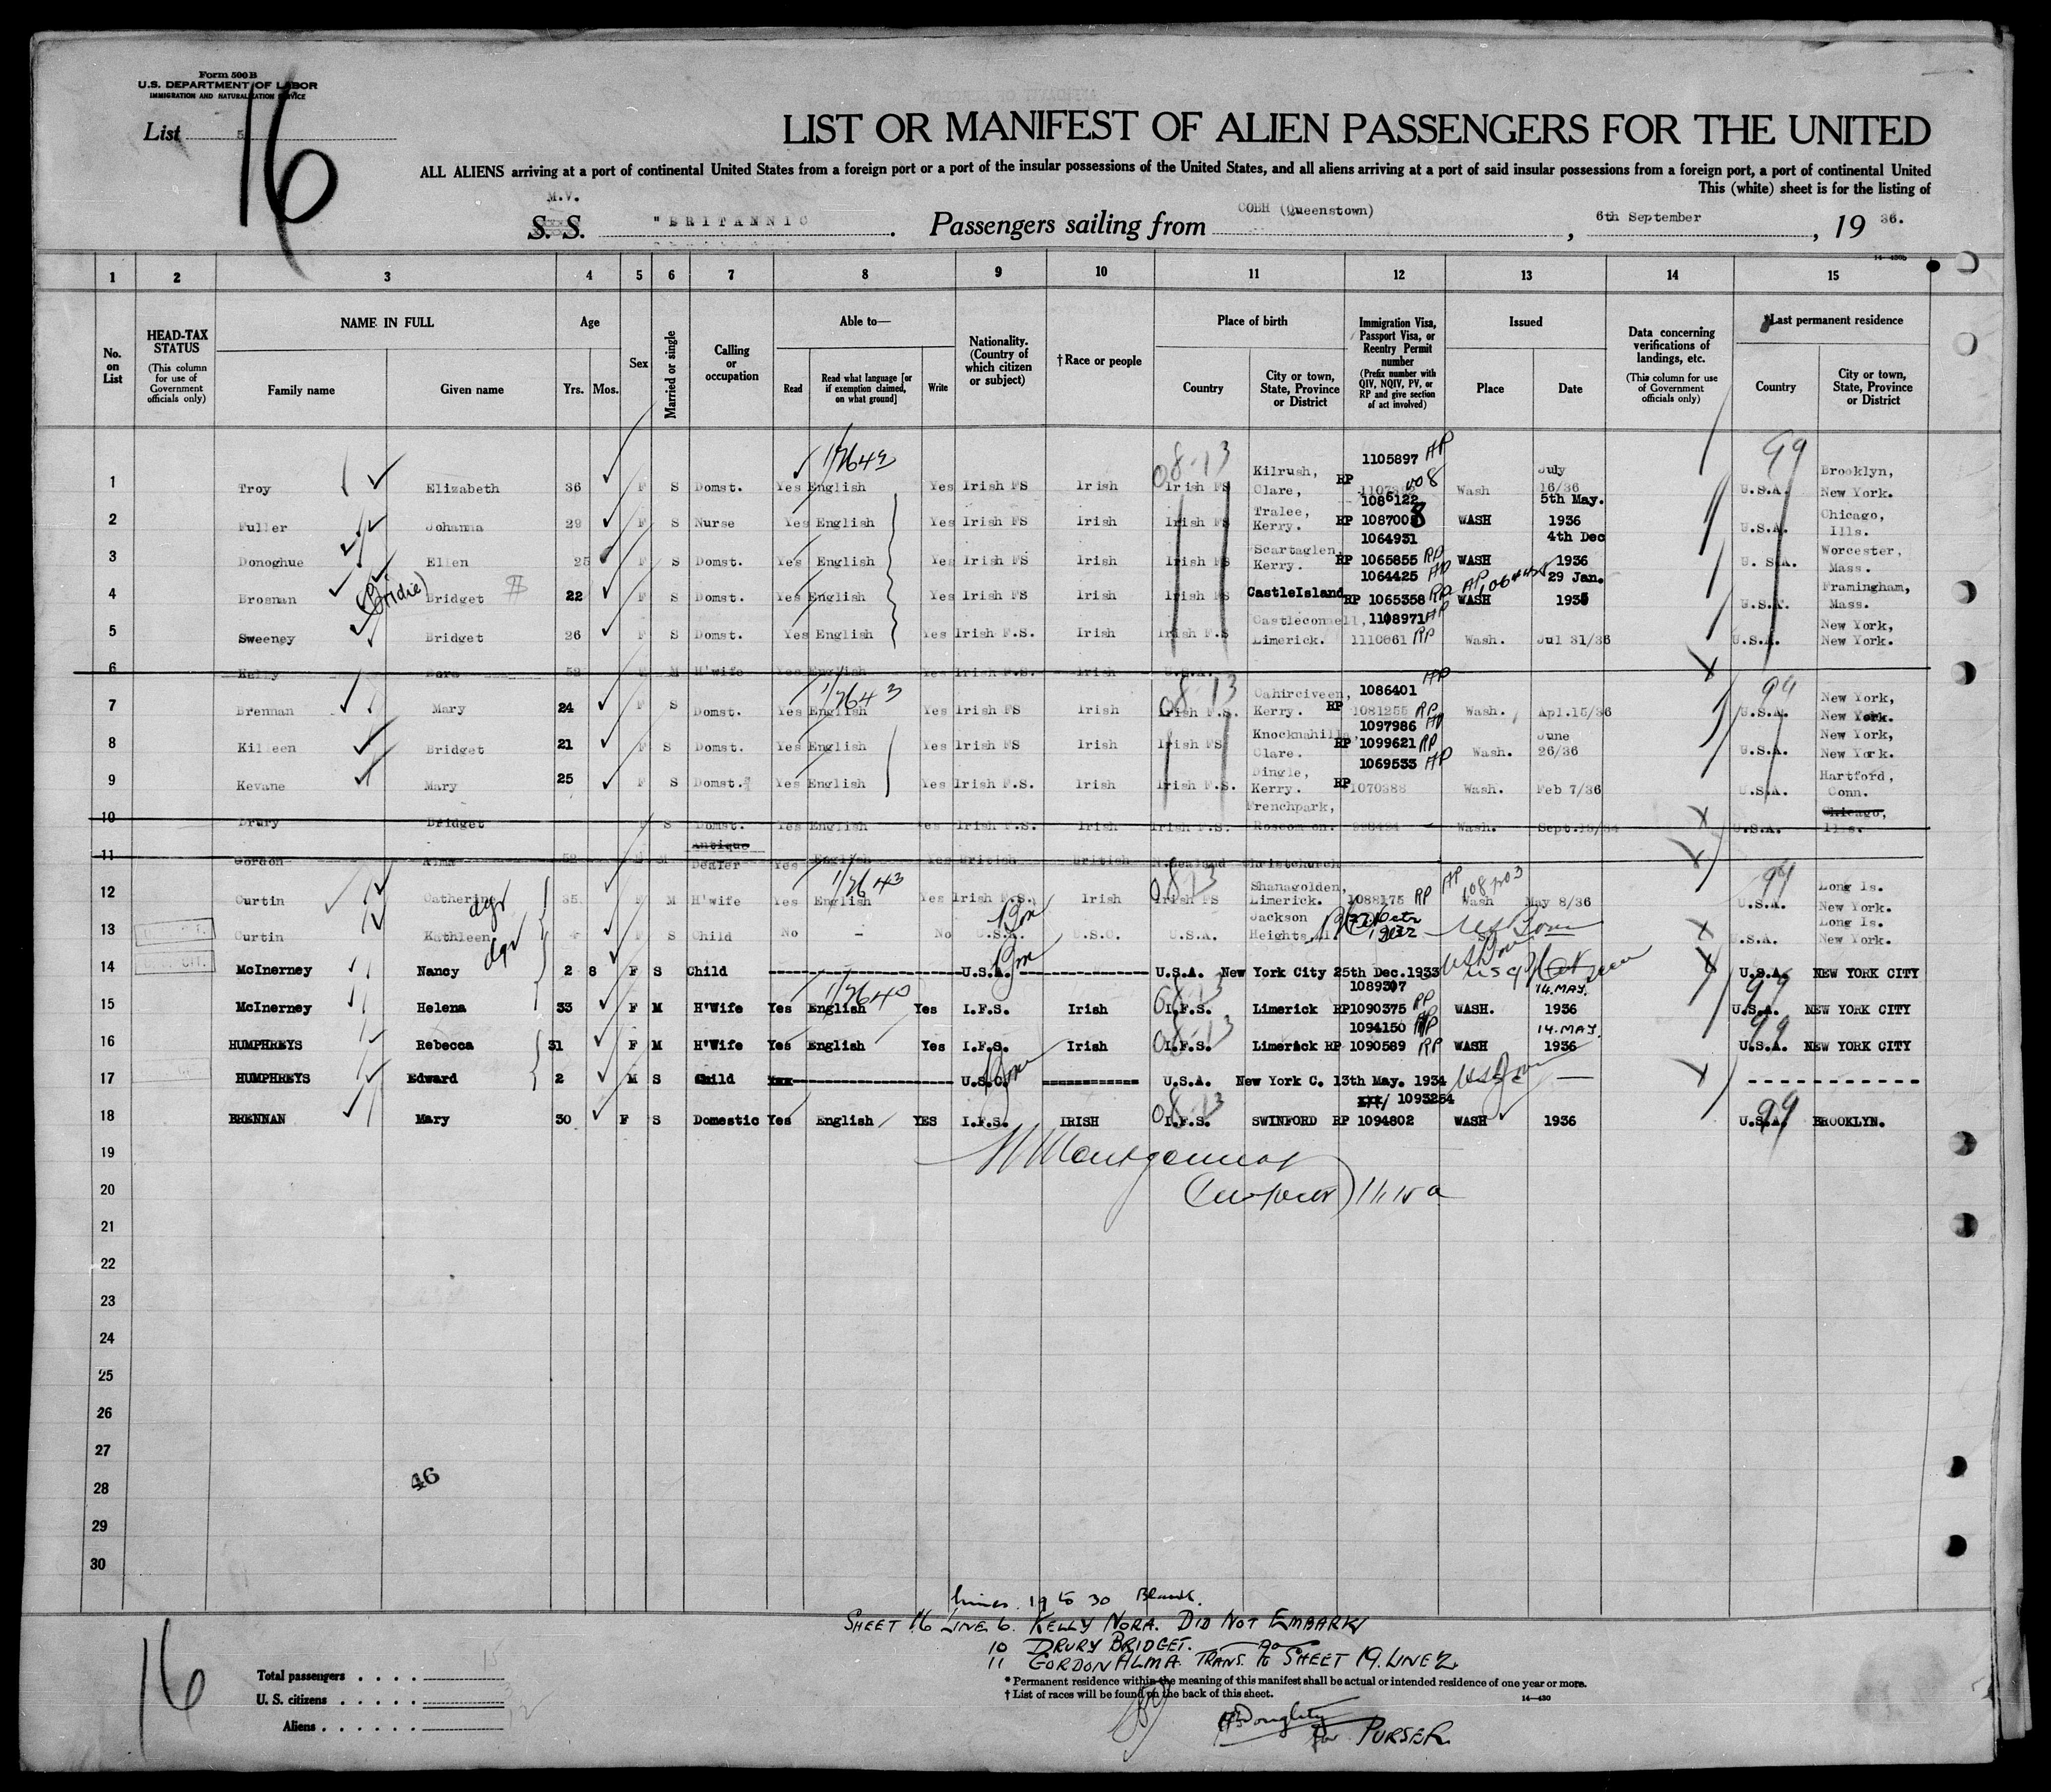 Form 500 B
U.S. DEPARTMENT OF LABOR
IMMIGRATION AND NATURALIZATION SERVICE
List 5
16
LIST OR MANIFEST OF ALIEN PASSENGERS FOR THE UNITED
ALL ALIENS arriving at a port of continental United States from a foreign port or a port of the insular possessions of the United States, and all aliens arriving at a port of said insular possessions from a foreign port, a port of continental United
This (white) sheet is for the listing of
M.V.
S. S. "BRITANNIC . Passengers sailing from COBH (Queenstown) , 6th September , 19 36.
14—430b
1 2 3 4 5 6 7 8 9 10 11 12 13 14 15
No. on List
HEAD-TAX STATUS (This column for use of Government officials only)
NAME IN FULL
Family name Given name
Age
Yrs. Mos.
Sex
Married or single
Calling or occupation
Able to—
Read Read what language [or if exemption claimed, on what ground] Write
Nationality. (Country of which citizen or subject)
† Race or people
Place of birth
Country City or town, State, Province or District
Immigration Visa, Passport Visa, or Reentry Permit number (Prefix number with QIV, NQIV, PV, or RP and give section of act involved)
Issued
Place Date
Data concerning verifications of landings, etc. (This column for use of Government officials only)
*Last permanent residence
Country City or town, State, Province or District
1 Troy Elizabeth 36 F S Domst. Yes English Yes Irish FS Irish 08-13 Irish FS Kilrush, Clare, 1105897 AP RP Wash July 16/36 99 U.S.A. Brooklyn, New York.
2 Fuller Johanna 29 F S Nurse Yes English Yes Irish FS Irish Irish FS Tralee, Kerry. 1086122 RP 1087008 WASH 5th May. 1936 U.S.A. Chicago, Ills.
3 Donoghue Ellen 25 F S Domst. Yes English Yes Irish FS Irish Irish FS Scartaglen, Kerry. 1064931 RP 1065855 RP WASH 4th Dec 1936 U. S.A. Worcester, Mass.
4 Brosnan (Bridie) Bridget 22 F S Domst. Yes English Yes Irish FS Irish Irish FS CastleIsland 1064425 AP RP 1065358 RP AP 1064425 WASH 29 Jan. 1936 U.S.A. Framingham, Mass.
5 Sweeney Bridget 26 F S Domst. Yes English Yes Irish F.S. Irish Irish F.S Castleconnell, Limerick. 1108971 AP 1110661 RP Wash. Jul 31/36 U.S.A. New York, New York.
6 Kelly Nora 52 F M H'wife Yes English Yes Irish F.S. Irish U.S.A.
7 Brennan Mary 24 F S Domst. Yes English Yes Irish FS Irish 08-13 Irish F.S. Cahirciveen, Kerry. AP 1086401 RP 1081255 RP Wash. Apl.15/36 99 U.S.A. New York, New York.
8 Killeen Bridget 21 F S Domst. Yes English Yes Irish FS Irish Irish FS Knocknahilla, Clare. 1097986 AP RP 1099621 RP Wash. June 26/36 U.S.A. New York, New York.
9 Kevane Mary 25 F S Domst. Yes English Yes Irish F.S. Irish Irish F.S. Dingle, Kerry. 1069533 AP RP 1070388 Wash. Feb 7/36 U.S.A. Hartford, Conn.
10 Drury Bridget F S Domst. Yes English Yes Irish F.S. Irish Irish F.S. Frenchpark, Roscommon. Wash. U.S.A. Chicago, Ills.
11 Gordon Alma 52 F M Antique Dealer Yes English Yes British British N.Zealand Christchurch
12 Curtin Catherine 35 F M H'wife Yes English Yes Irish F.S. Irish 08-13 Irish FS Shanagolden, Limerick. 1088175 RP AP Wash May 8/36 99 U.S.A. Long Is. New York.
13 Curtin Kathleen dgr 4 F S Child No - No U.S.A. U.S.C. U.S.A. Jackson Heights US Born U.S.A. Long Is. New York.
14 McInerney Nancy dgr 2 8 F S Child U.S.A. U.S.A. New York City 25th Dec.1933 US Born U.S.A. NEW YORK CITY
15 McInerney Helena 33 F M H'Wife Yes English Yes I.F.S. Irish 08-13 I.F.S. Limerick 1089307 RP1090375 RP WASH. 14.MAY. 1936 99 U.S.A. NEW YORK CITY
16 HUMPHREYS Rebecca 31 F M H'Wife Yes English Yes I.F.S. Irish 08-13 I.F.S. Limerick 1094150 AP RP 1090589 RP WASH 14.MAY. 1936 99 U.S.A. NEW YORK CITY
17 HUMPHREYS Edward 2 M S Child U.S.C. U.S.A. New York C. 13th May. 1934 US Born
18 BRENNAN Mary 30 F S Domestic Yes English YES I.F.S. IRISH 08-13 I.F.S. SWINFORD 1093254 RP 1094802 WASH 1936 99 U.S.A. BROOKLYN.
19
20
21
22
23
24
25
26
27
28
29
30
46
Lines 19 to 30 Blank.
SHEET 16 LINE 6. KELLY NORA. DID NOT EMBARK
10 DRURY BRIDGET. DO
11 GORDON ALMA. TRANS. TO SHEET 19. LINE 2.
* Permanent residence within the meaning of this manifest shall be actual or intended residence of one year or more.
† List of races will be found on the back of this sheet.
14—430
16
Total passengers . . . . 15
U. S. citizens . . . . . 3
Aliens . . . . . . 12
for PURSER.